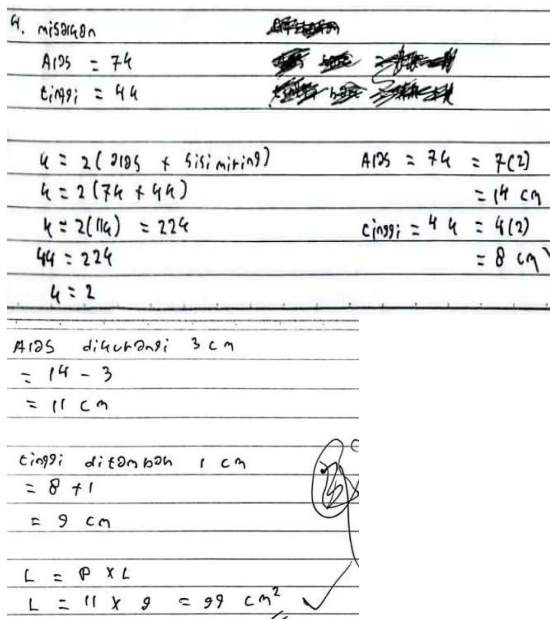 4. misalkan
Alas = 7k
tinggi = 4k
k = 2(alas + sisi miring)
k = 2(7k + 4k)
k = 2(11k) = 22k
44 = 22k
k = 2
Alas = 7k = 7(2)
= 14 cm
tinggi = 4k = 4(2)
= 8 cm
Alas dikurangi 3 cm
= 14 - 3
= 11 cm
tinggi ditambah 1 cm
= 8 + 1
= 9 cm
L = P x L
L = 11 x 9 = 99 cm²